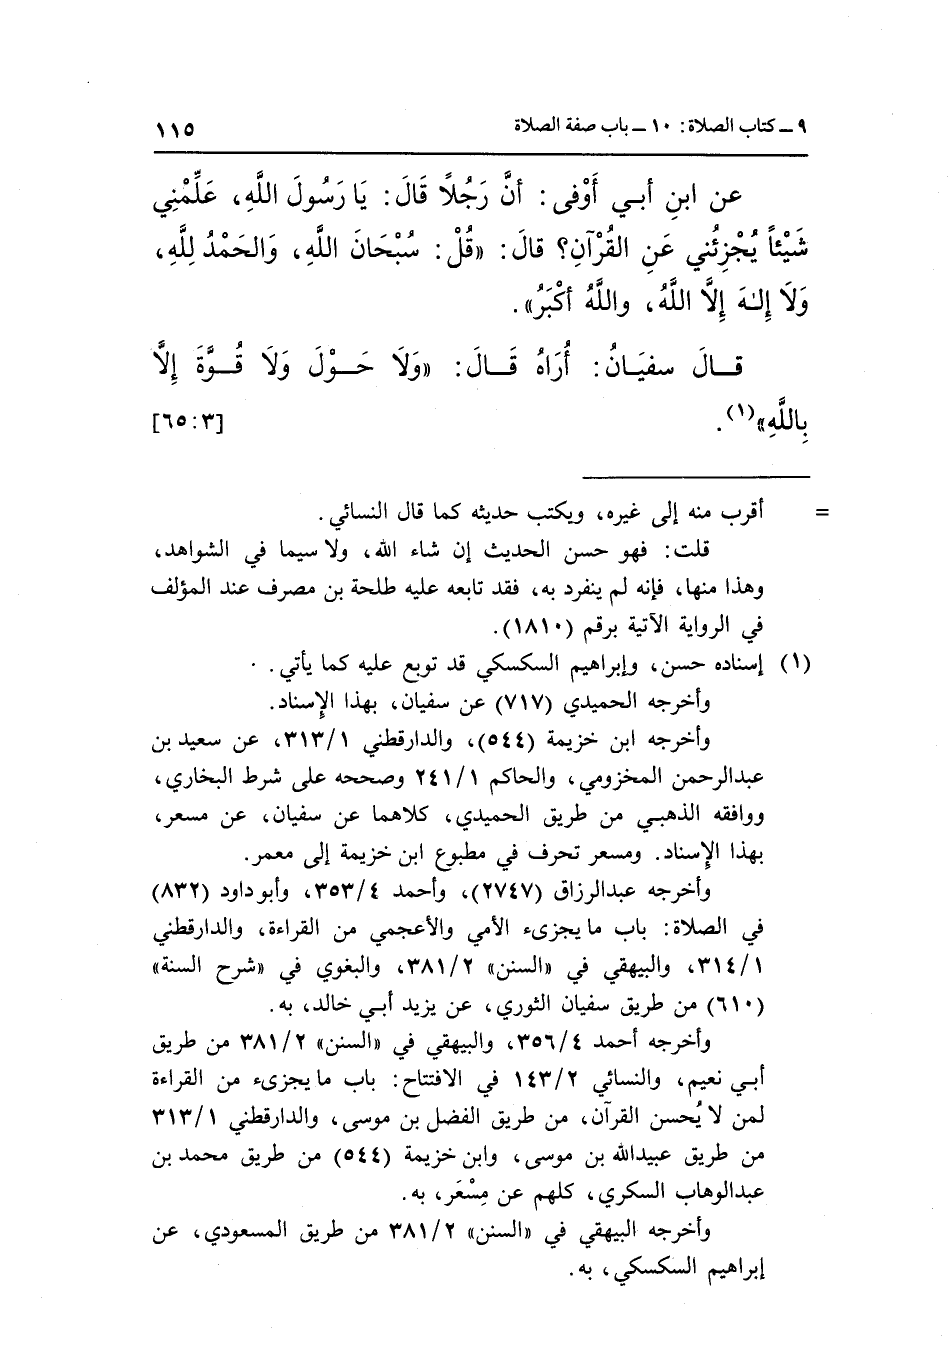 ٩ ـ كتاب الصلاة: ١٠ ـ باب صفة الصلاة ١١٥
عن ابنِ أبي أَوْفى: أنَّ رَجُلاً قَالَ: يَا رَسُولَ اللَّهِ، عَلِّمْنِي
شَيْئاً يُجْزِئُني عَنِ القُرْآنِ؟ قالَ: «قُلْ: سُبْحَانَ اللَّهِ، وَالحَمْدُ لِلَّهِ،
وَلَا إِلهَ إِلَّا اللَّهُ، واللَّهُ أكْبَرُ».
قالَ سفيَانُ: أُرَاهُ قَالَ: «وَلَا حَوْلَ وَلَا قُوَّةَ إِلَّا
بِاللَّهِ»(١). [٣:٦٥]
= أقرب منه إلى غيره، ويكتب حديثه كما قال النسائي.
قلت: فهو حسن الحديث إن شاء الله، ولا سيما في الشواهد،
وهذا منها، فإنه لم ينفرد به، فقد تابعه عليه طلحة بن مصرف عند المؤلف
في الرواية الآتية برقم (١٨١٠).
(١) إسناده حسن، وإبراهيم السكسكي قد توبع عليه كما يأتي.
وأخرجه الحميدي (٧١٧) عن سفيان، بهذا الإسناد.
وأخرجه ابن خزيمة (٥٤٤)، والدارقطني ٣١٣/١، عن سعيد بن
عبدالرحمن المخزومي، والحاكم ٢٤١/١ وصححه على شرط البخاري،
ووافقه الذهبي من طريق الحميدي، كلاهما عن سفيان، عن مسعر،
بهذا الإسناد. ومسعر تحرف في مطبوع ابن خزيمة إلى معمر.
وأخرجه عبدالرزاق (٢٧٤٧)، وأحمد ٣٥٣/٤، وأبو داود (٨٣٢)
في الصلاة: باب ما يجزىء الأمي والأعجمي من القراءة، والدارقطني
٣١٤/١، والبيهقي في «السنن» ٣٨١/٢، والبغوي في «شرح السنة»
(٦١٠) من طريق سفيان الثوري، عن يزيد أبي خالد، به.
وأخرجه أحمد ٣٥٦/٤، والبيهقي في «السنن» ٣٨١/٢ من طريق
أبي نعيم، والنسائي ١٤٣/٢ في الافتتاح: باب ما يجزىء من القراءة
لمن لا يُحسن القرآن، من طريق الفضل بن موسى، والدارقطني ٣١٣/١
من طريق عبيدالله بن موسى، وابن خزيمة (٥٤٤) من طريق محمد بن
عبدالوهاب السكري، كلهم عن مِسْعَر، به.
وأخرجه البيهقي في «السنن» ٣٨١/٢ من طريق المسعودي، عن
إبراهيم السكسكي، به.